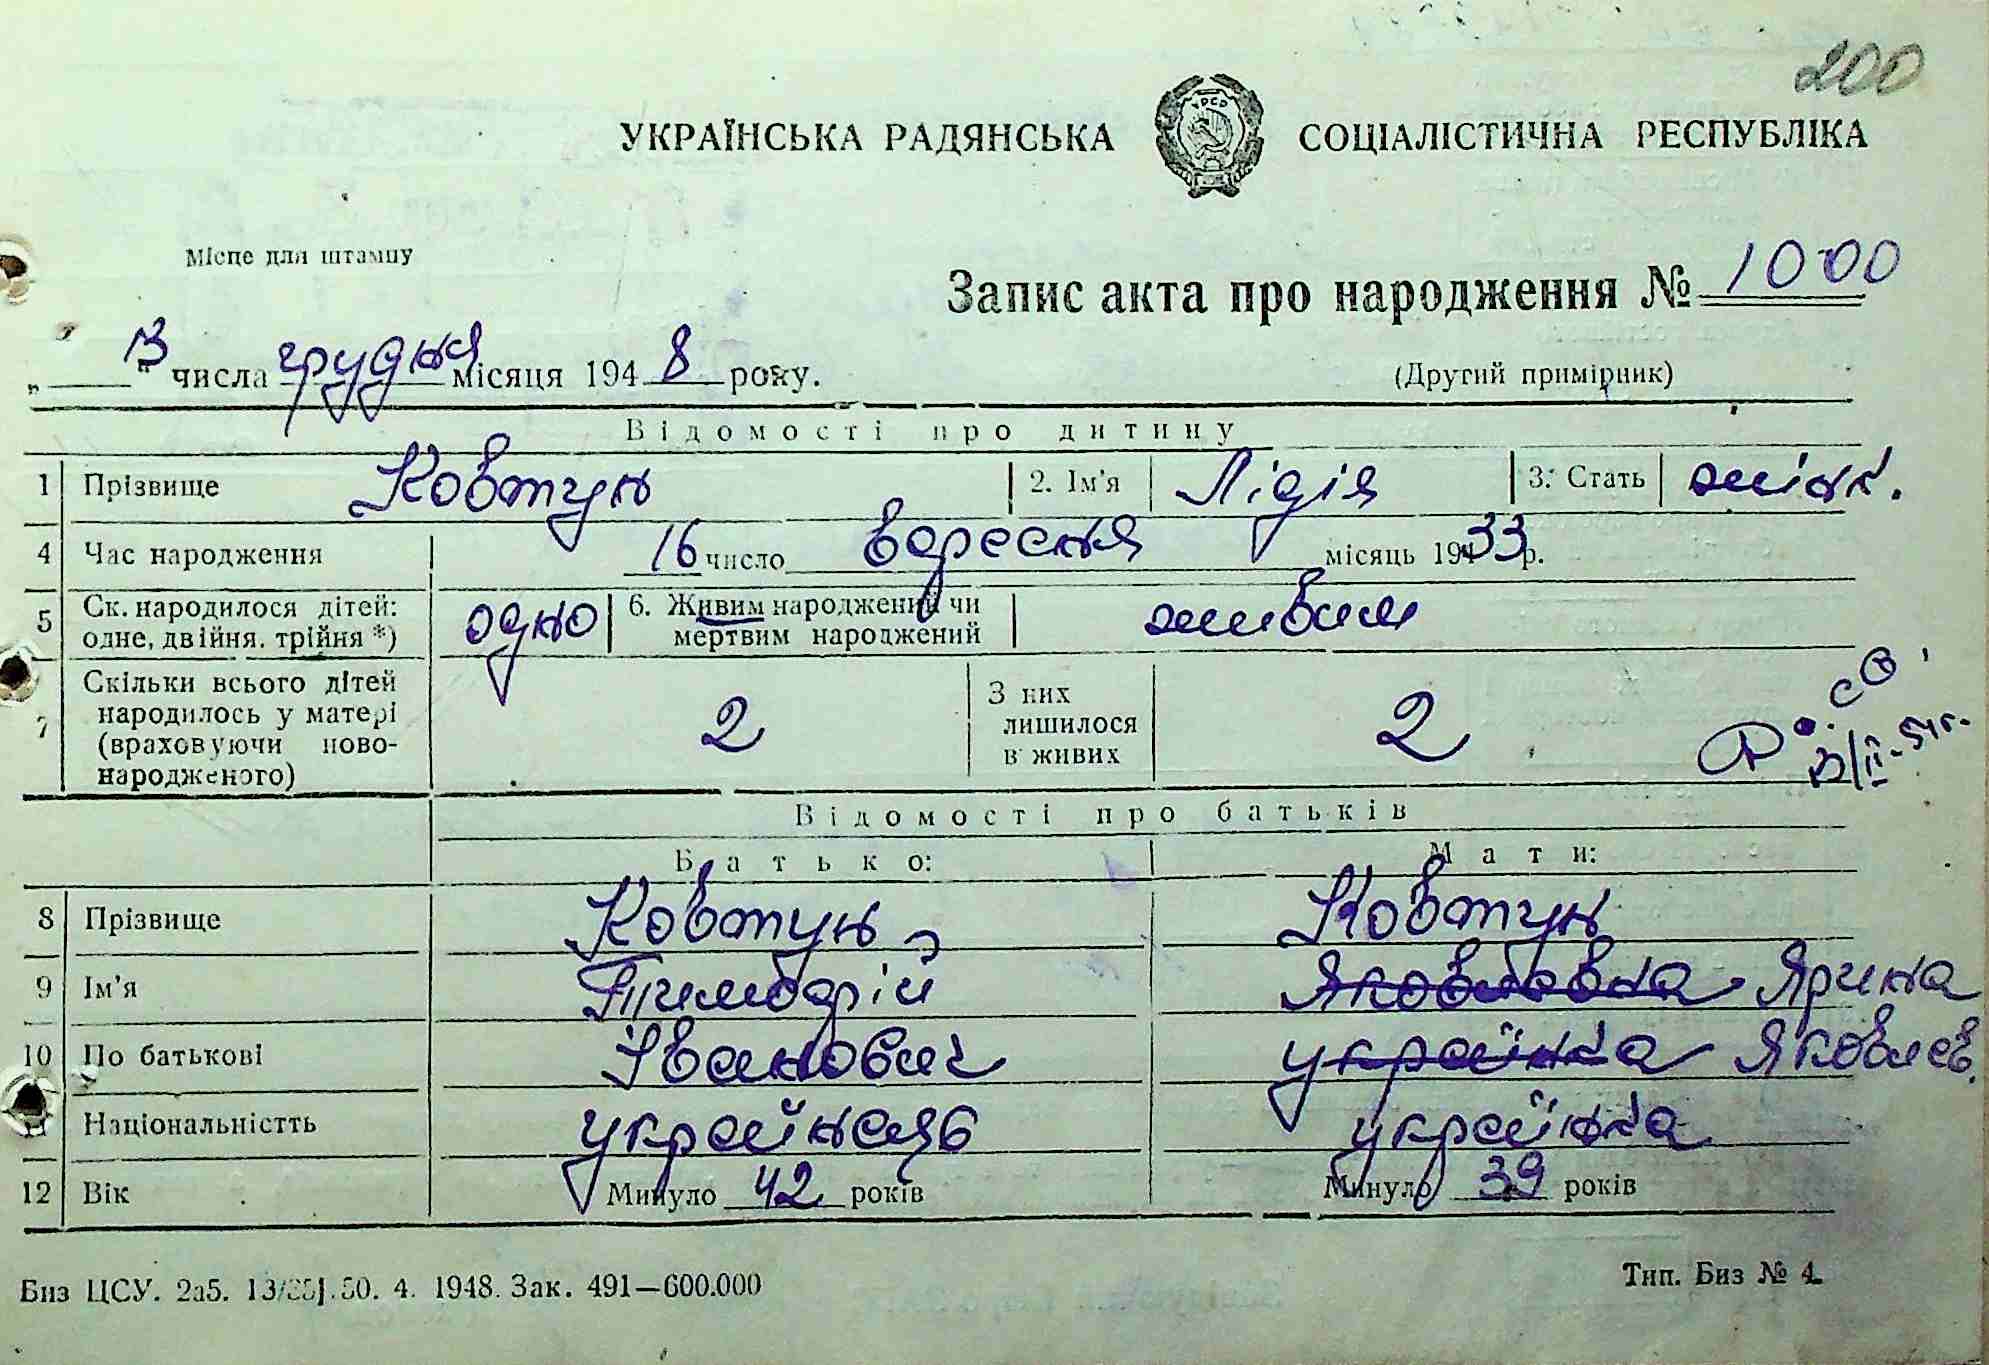 200
УКРАЇНСЬКА РАДЯНСЬКА СОЦІАЛІСТИЧНА РЕСПУБЛІКА
УРСР
Місце для штампу
Запис акта про народження № 1000
„ 13 " числа грудня місяця 1948 року.
(Другий примірник)
Відомості про дитину
1 Прізвище Ковтун 2. Ім'я Лідія 3. Стать жіноч.
4 Час народження 16 число вересня місяць 1933 р.
5 Ск. народилося дітей: одне, двійня, трійня *) одно 6. Живим народжений чи мертвим народжений живим
7 Скільки всього дітей народилось у матері (враховуючи новонародженого) 2 З них лишилося в живих 2
Відомості про батьків
Батько: Мати:
8 Прізвище Ковтун Ковтун
9 Ім'я Тимофій Яковлевна Ярина
10 По батькові Іванович українка Яковлев.
11 Національністть українець українка
12 Вік Минуло 42 років Минуло 39 років
Биз ЦСУ. 2а5. 50. 4. 1948. Зак. 491—600.000
Тип. Биз № 4.